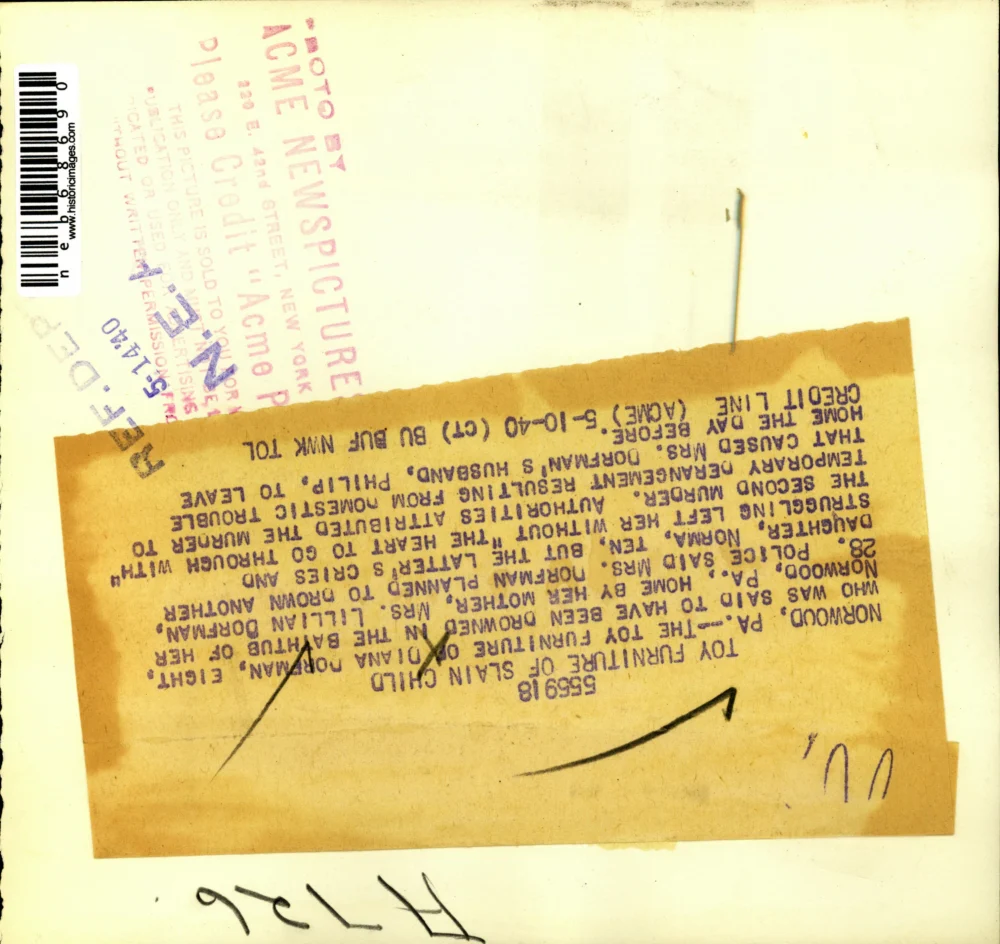 555918
TOY FURNITURE OF SLAIN CHILD
NORWOOD, PA.--THE TOY FURNITURE OF DIANA DORFMAN, EIGHT,
WHO WAS SAID TO HAVE BEEN DROWNED IN THE BATHTUB OF HER
NORWOOD, PA., HOME BY HER MOTHER, MRS. LILLIAN DORFMAN,
28. POLICE SAID MRS. DORFMAN PLANNED TO DROWN ANOTHER
DAUGHTER, NORMA, TEN, BUT THE LATTER'S CRIES AND
STRUGGLING LEFT HER WITHOUT "THE HEART TO GO THROUGH WITH"
THE SECOND MURDER. AUTHORITIES ATTRIBUTED THE MURDER TO
TEMPORARY DERANGEMENT RESULTING FROM DOMESTIC TROUBLE
THAT CAUSED MRS. DORFMAN'S HUSBAND, PHILIP, TO LEAVE
HOME THE DAY BEFORE.
CREDIT LINE (ACME) 5-10-40 (CT) BU BUF NWK TOL
PHOTO BY
ACME NEWSPICTURES
220 E. 42nd STREET, NEW YORK
Please Credit "Acme P
THIS PICTURE IS SOLD TO YOU FOR
PUBLICATION ONLY AND MUST NOT BE
USED
WITHOUT WRITTEN PERMISSION FRO
N.E.A
REF. DEP
5-14-40
neb68690
www.historicimages.com